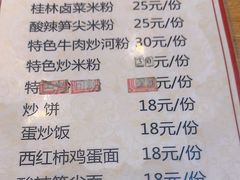 桂林卤菜米粉 25元/份
酸辣笋尖米粉 25元/份
特色牛肉炒河粉 30元/份
特色炒米粉 元/份
特
炒饼 18元/份
蛋炒饭 18元/份
西红柿鸡蛋面 18元/份
酸辣笋尖面 18元/份